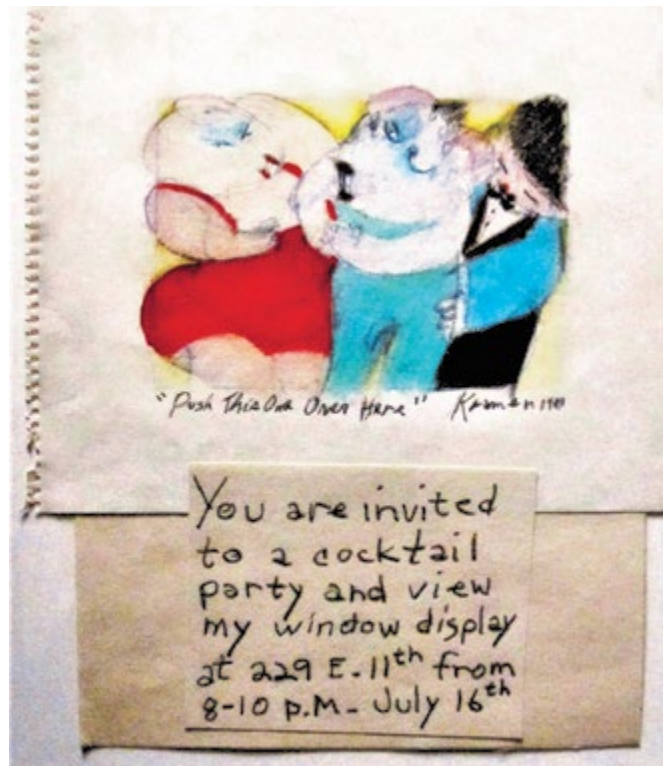 "Push This One Over Here" Karman 1981
You are invited
to a cocktail
party and view
my window display
at 229 E. 11th from
8-10 p.M. July 16th